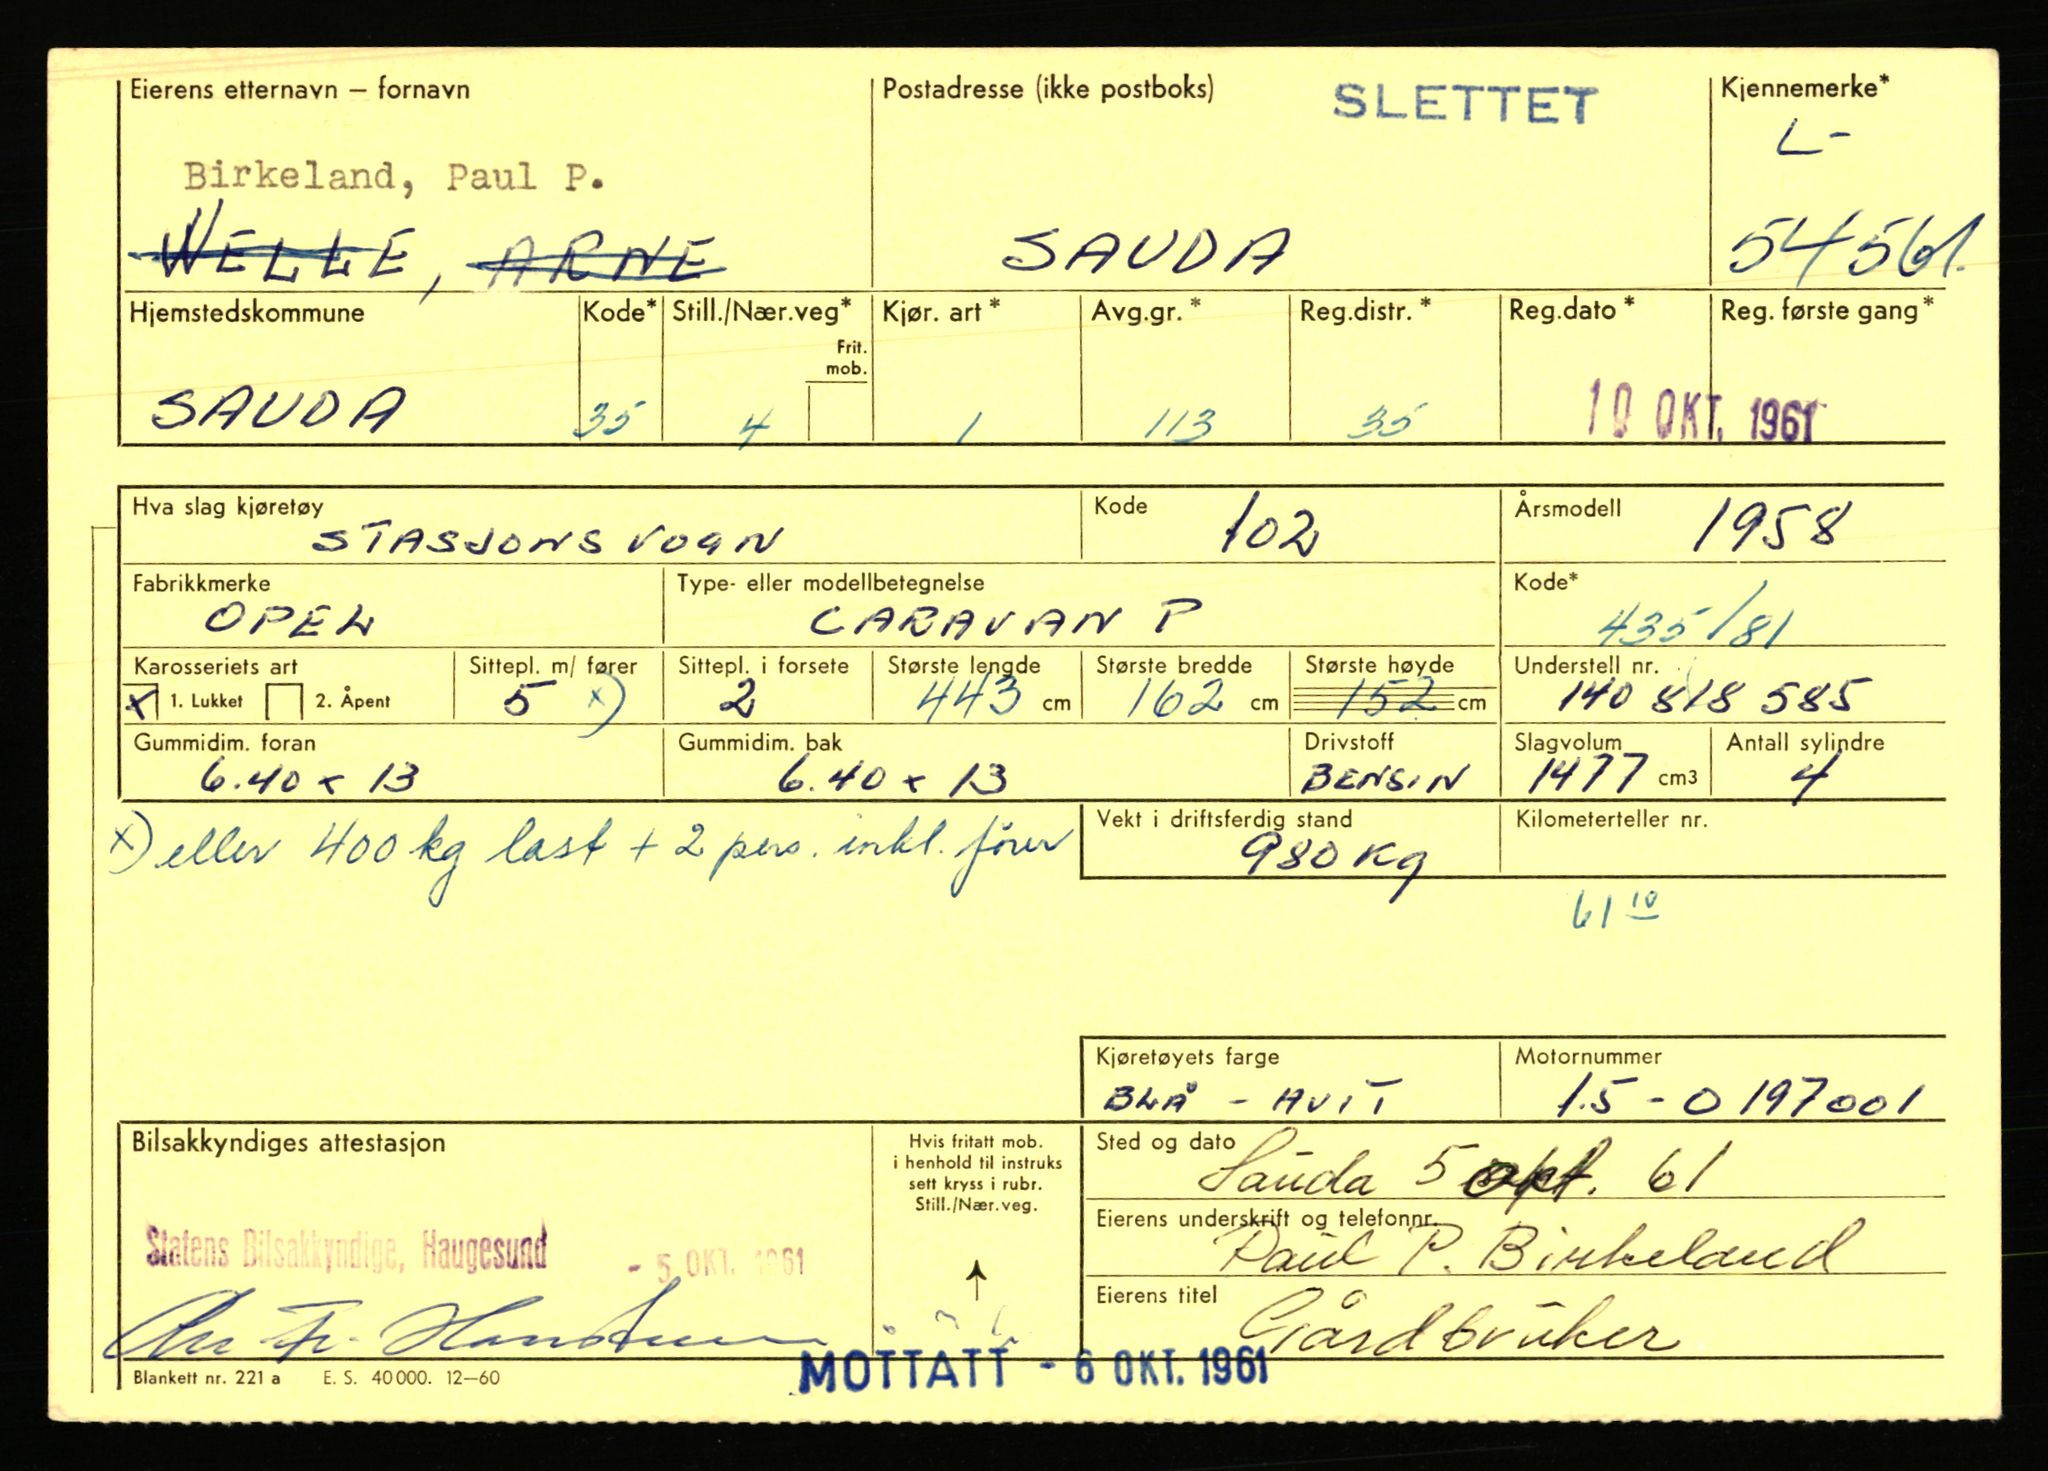 Eierens etternavn – fornavn Postadresse (ikke postboks) SLETTET Kjennemerke*
L-
Birkeland, Paul P.
WELLE, ARNE SAUDA 54561.
Hjemstedskommune Kode* Still./Nær.veg* Kjør. art* Avg.gr.* Reg.distr.* Reg.dato* Reg. første gang*
Frit.
mob.
SAUDA 35 4 1 113 35 10 OKT. 1961
Hva slag kjøretøy Kode Årsmodell
STASJONSVOGN 102 1958
Fabrikkmerke Type- eller modellbetegnelse Kode*
OPEL CARAVAN P 435/81
Karosseriets art Sittepl. m/ fører Sittepl. i forsete Største lengde Største bredde Største høyde Understell nr.
x 1. Lukket 2. Åpent 5 x) 2 443 cm 162 cm 152 cm 140 818 585
Gummidim. foran Gummidim. bak Drivstoff Slagvolum Antall sylindre
6.40 x 13 6.40 x 13 BENSIN 1477 cm3 4
x) eller 400 kg last + 2 pers. inkl. fører Vekt i driftsferdig stand Kilometerteller nr.
980 kg
61 10
Kjøretøyets farge Motornummer
BLÅ - HVIT 1.5-0197001
Bilsakkyndiges attestasjon Hvis fritatt mob. Sted og dato
i henhold til instruks
sett kryss i rubr.
Still./Nær.veg.
Sauda 5 okt. 61
Eierens underskrift og telefonnr.
Statens Bilsakkyndige, Haugesund - 5 OKT. 1961 Paul P. Birkeland
Eierens titel
Gårdbruker
MOTTATT - 6 OKT. 1961
Blankett nr. 221 a E. S. 40 000. 12–60